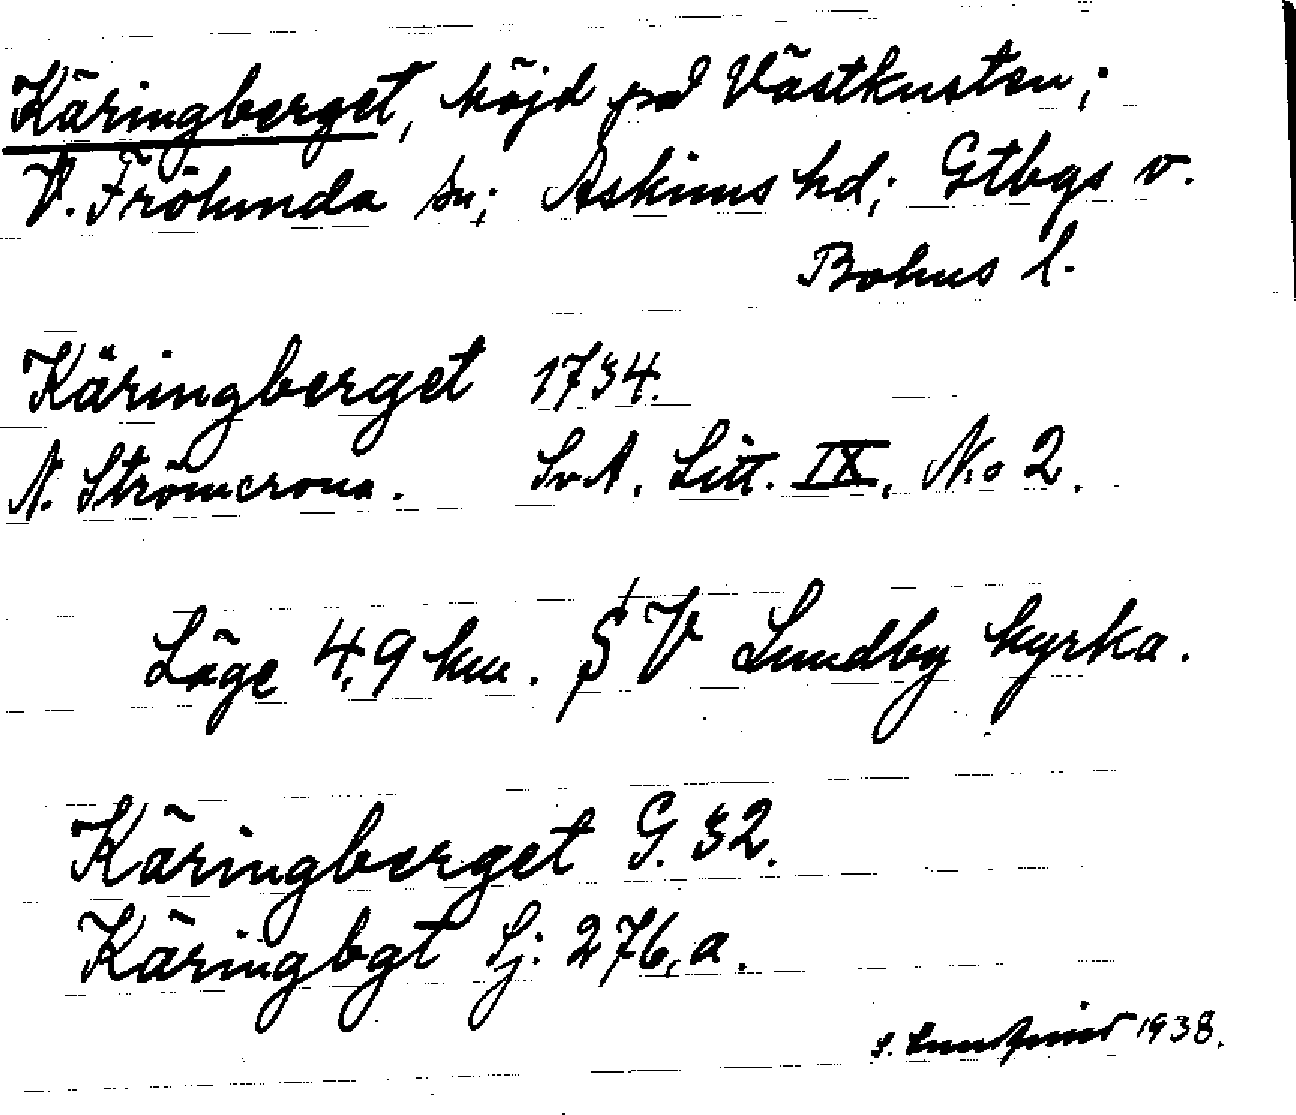 Käringberget, höjd på Västkusten;
V. Frölunda sn; Askims hd; Gtbgs o.
Bohus l.
Käringberget 1734.
N. Strömcrona. SvA. Litt. IX, No 2.
Läge 4,9 km. S V Lundby kyrka.
Käringberget G. 32.
Käringbgt Sj: 276, a.
S. 1938.